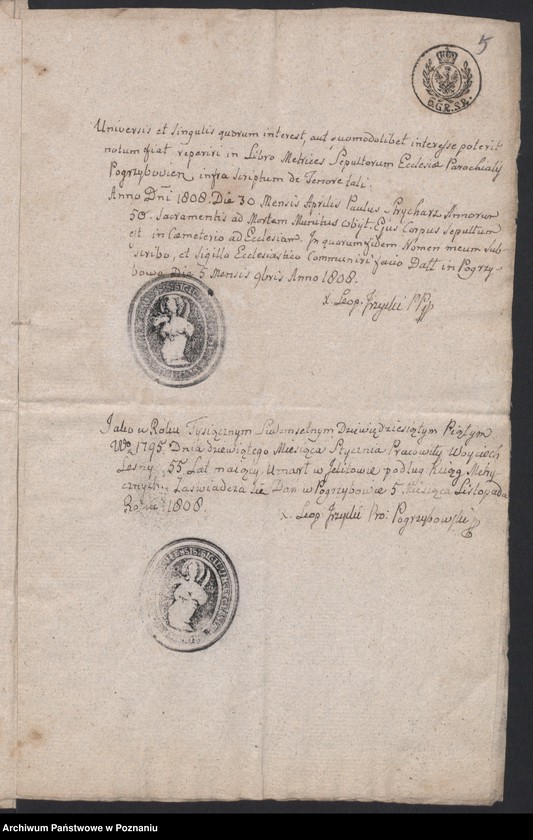 5
6 GR. SR.
Universis et Singulis quorum interest, aut quomodolibet interesse poterit
notum fiat reperiri in Libro Metrices Sepultorum Ecclesiæ Parochialis
Pogrzybovien infra scriptum de Tenore tali.
Anno Dni 1808. Die 30 Mensis Aprilis Paulus Prycharz Annorum
50. Sacramentis ad Mortem Munitus obyt. Ejus Corpus Sepultum
est in Cæmeterio ad Ecclesiam. In quorum fidem Nomen meum Sub-
scribo, et Sigillo Ecclesiastico Communiri facio Datt in Pogrzy-
bowo Die 5 Mensis 9bris Anno 1808.
x. Leop.
Jako w Roku Tysiącznym Siedemsetnym Dziewiędziesiątym Piątym
1795. Dnia dziewiątego Miesiąca Stycznia Pracowity Woyciech
Lesny 55. Lat maiący, Umarł w Jelitowie podług Xiąg Metry-
cznych. Zaswiadcza się Dan w Pogrzybowie 5. Miesiąca Listopada
Roku 1808.
x. Leop Pro: Pogrzybowski
Archiwum Państwowe w Poznaniu